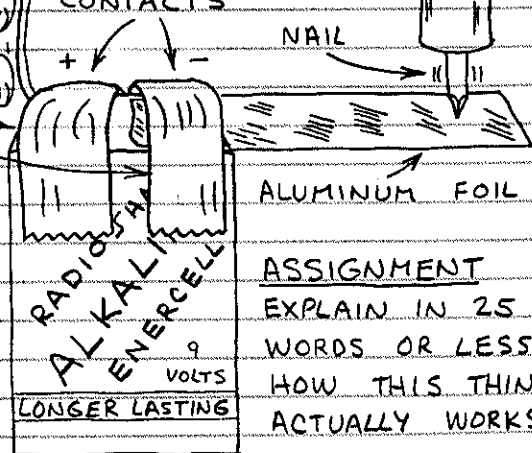 CONTACTS
NAIL
+
-
ALUMINUM FOIL
RADIO
ALKALI
ENERCELL
9
VOLTS
LONGER LASTING
ASSIGNMENT
EXPLAIN IN 25
WORDS OR LESS
HOW THIS THIN
ACTUALLY WORKS